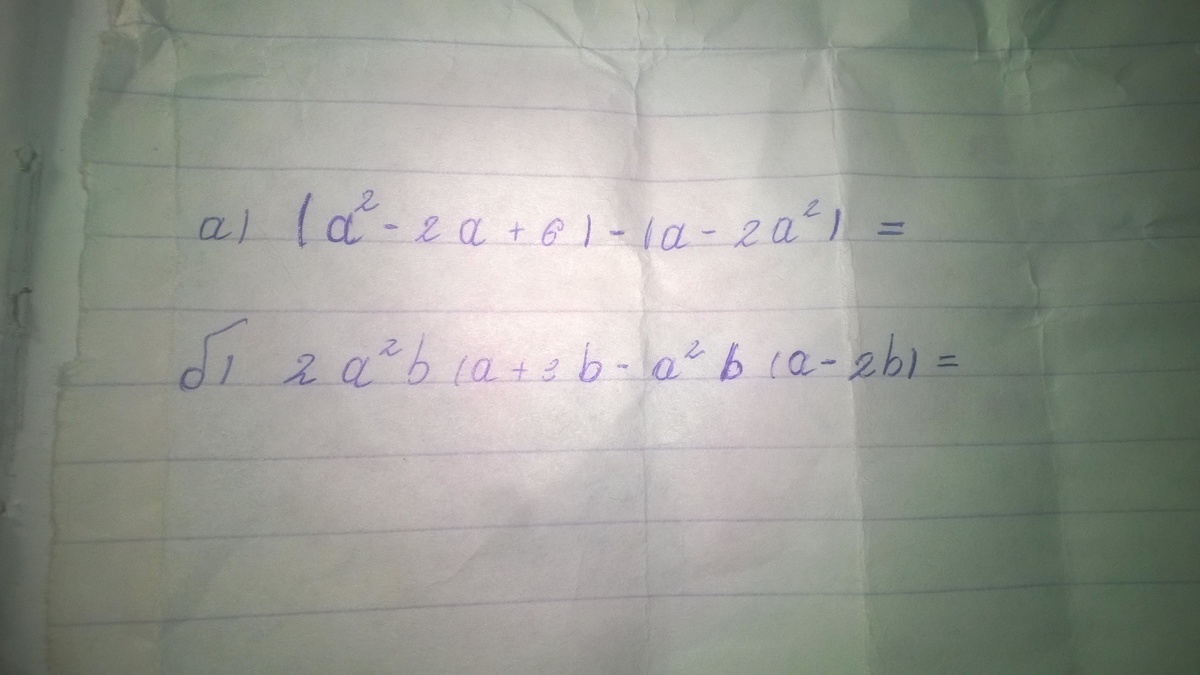 а) (a² - 2a + 6) - (a - 2a²) =
б) 2a²b (a + 3b - a² b (a - 2b) =